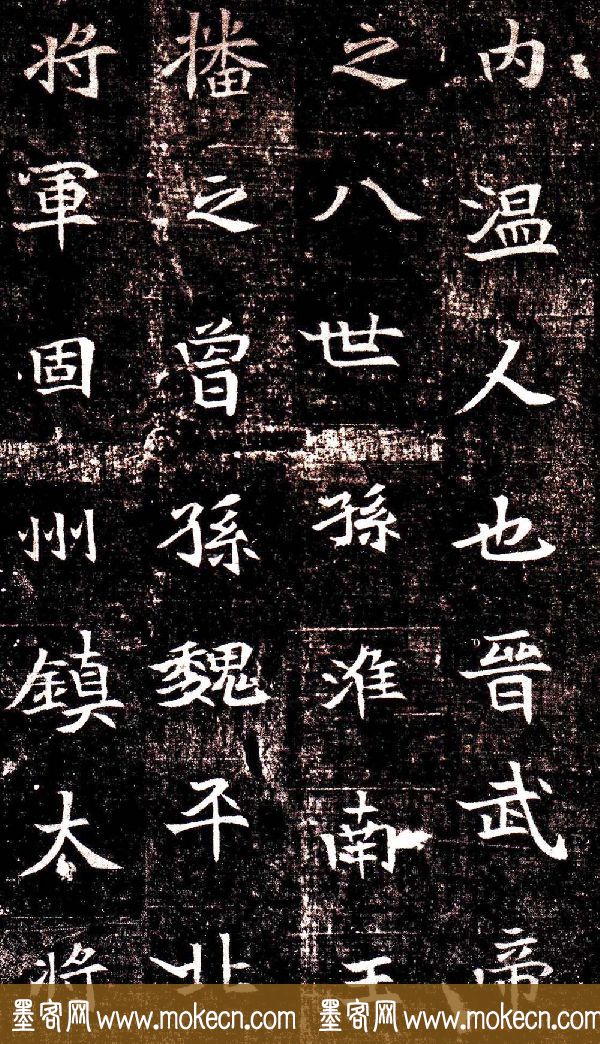 内温人也晉武帝
之八世孫淮南王
播之曾孫魏平北
將軍固州鎮大將
墨客网 www.mokecn.com 墨客网 www.mokecn.com